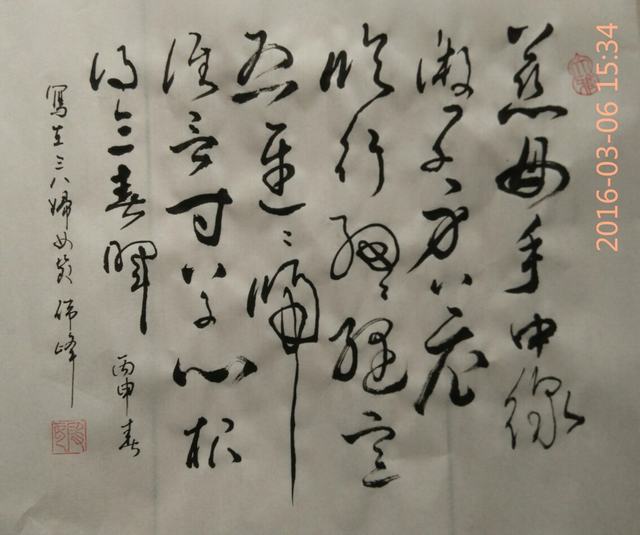 慈母手中線
游子身上衣
临行密々缝意
恐遲々歸
谁言寸草心报
得三春暉 丙申春
寫在三八婦女節 峰
2016-03-06 15:34